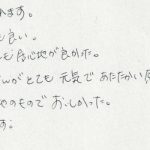 ます。
も良い。
も居心地が良かった。
んがとても元気であたたかい
のもので おいしかった。
す。